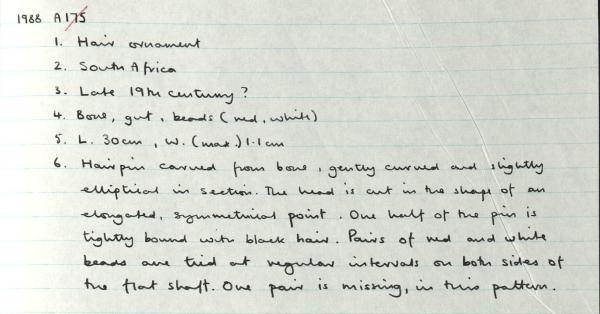 1988 A175
1. Hair ornament
2. South Africa
3. Late 19th century?
4. Bone, gut, beads (red, white)
5. L. 30cm, W. (max.) 1.1cm
6. Hairpin carved from bone, gently curved and slightly
elliptical in section. The head is cut in the shape of an
elongated, symmetrical point. One half of the pin is
tightly bound with black hair. Pairs of red and white
beads are tied at regular intervals on both sides of
the flat shaft. One pair is missing, in this pattern.